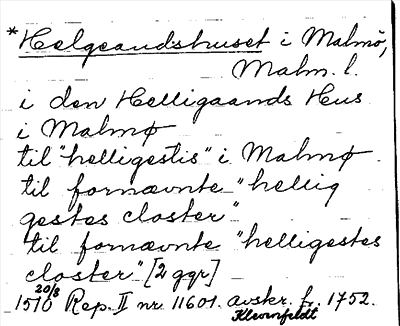 *Helgeandshuset i Malmö,
Malm. l.
i den Helligaands Hus
i Malmø
til "helligestis" i Malmø
til fornævnte "hellig
gestes closter"
til fornævnte "helligestes
closter" [2 ggr]
1510 20/8 Rep. II nr 11601. avskr. fr. 1752.
Klevenfeldt